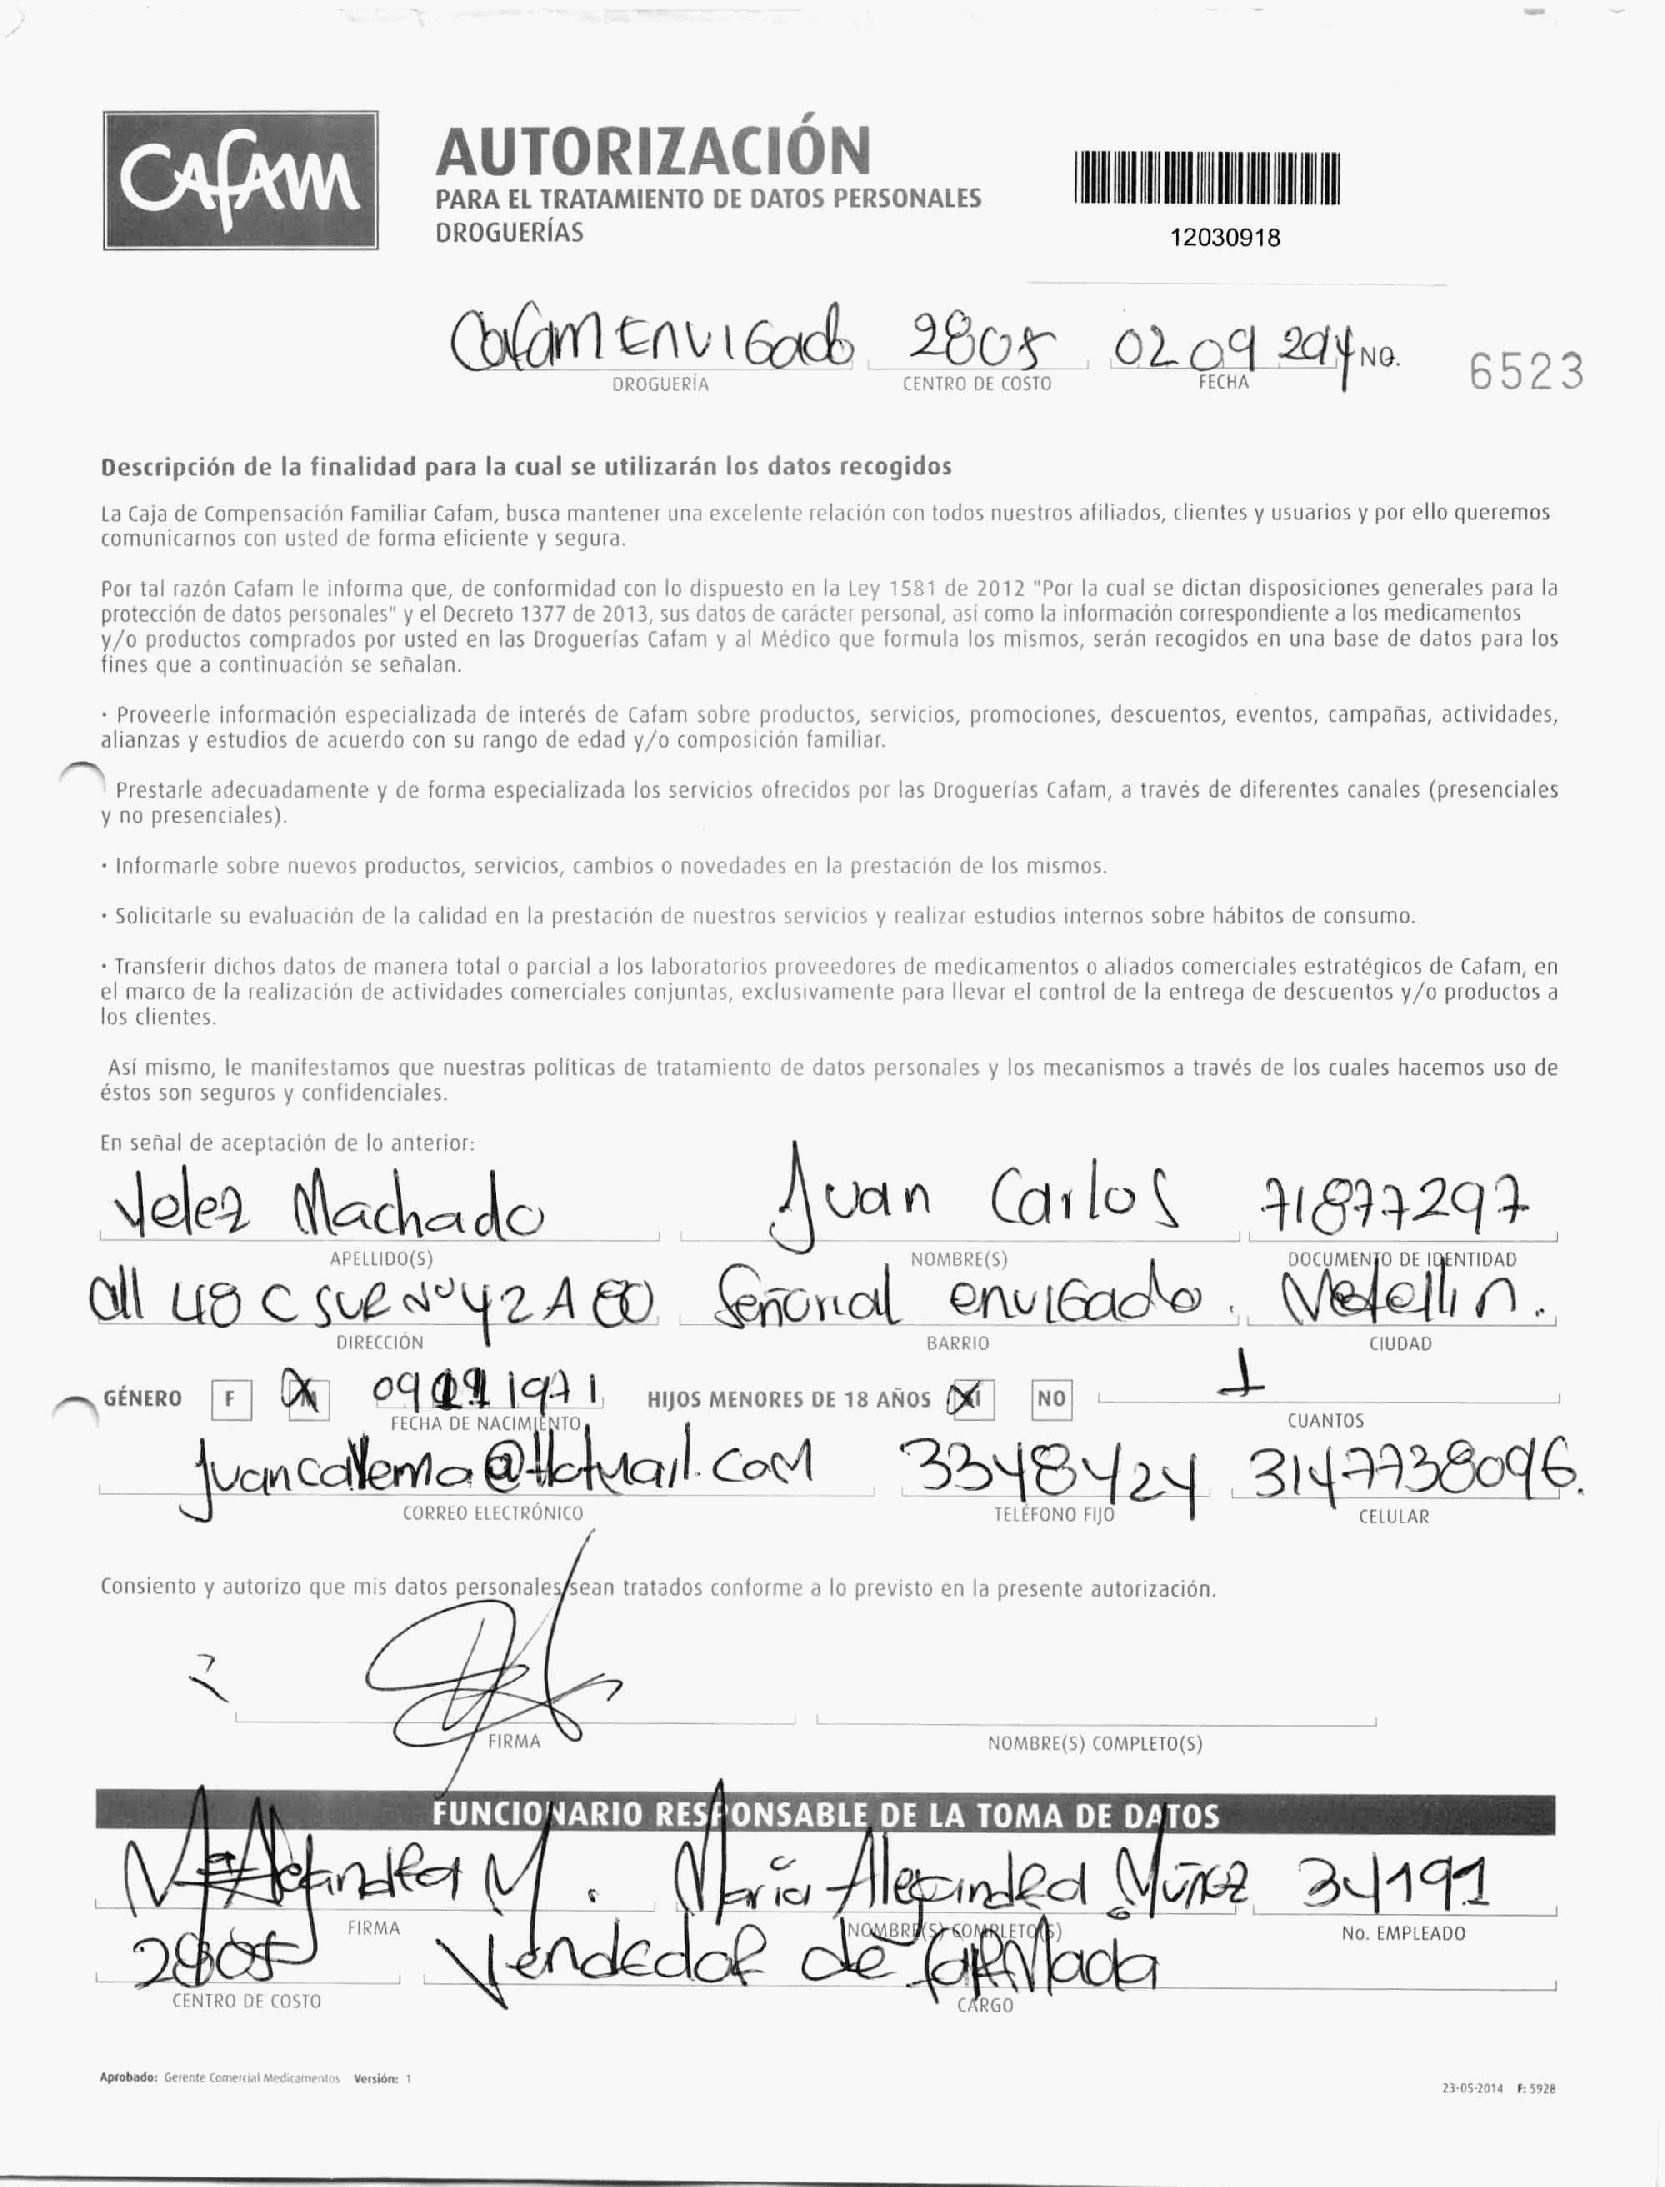 CAFAM
AUTORIZACIÓN
PARA EL TRATAMIENTO DE DATOS PERSONALES
DROGUERÍAS
12030918
Cafam Envigado 2805 02 09 2014 NO. 6523
DROGUERÍA CENTRO DE COSTO FECHA
Descripción de la finalidad para la cual se utilizarán los datos recogidos
La Caja de Compensación Familiar Cafam, busca mantener una excelente relación con todos nuestros afiliados, clientes y usuarios y por ello queremos
comunicarnos con usted de forma eficiente y segura.
Por tal razón Cafam le informa que, de conformidad con lo dispuesto en la Ley 1581 de 2012 "Por la cual se dictan disposiciones generales para la
protección de datos personales" y el Decreto 1377 de 2013, sus datos de carácter personal, así como la información correspondiente a los medicamentos
y/o productos comprados por usted en las Droguerías Cafam y al Médico que formula los mismos, serán recogidos en una base de datos para los
fines que a continuación se señalan.
· Proveerle información especializada de interés de Cafam sobre productos, servicios, promociones, descuentos, eventos, campañas, actividades,
alianzas y estudios de acuerdo con su rango de edad y/o composición familiar.
Prestarle adecuadamente y de forma especializada los servicios ofrecidos por las Droguerías Cafam, a través de diferentes canales (presenciales
y no presenciales).
· Informarle sobre nuevos productos, servicios, cambios o novedades en la prestación de los mismos.
· Solicitarle su evaluación de la calidad en la prestación de nuestros servicios y realizar estudios internos sobre hábitos de consumo.
· Transferir dichos datos de manera total o parcial a los laboratorios proveedores de medicamentos o aliados comerciales estratégicos de Cafam, en
el marco de la realización de actividades comerciales conjuntas, exclusivamente para llevar el control de la entrega de descuentos y/o productos a
los clientes.
Así mismo, le manifestamos que nuestras políticas de tratamiento de datos personales y los mecanismos a través de los cuales hacemos uso de
éstos son seguros y confidenciales.
En señal de aceptación de lo anterior:
Velez Machado Juan Carlos 71877297
APELLIDO(S) NOMBRE(S) DOCUMENTO DE IDENTIDAD
Cll 48 C SUR Nº 42 A 80 Señorial envigado. Medellin.
DIRECCIÓN BARRIO CIUDAD
GÉNERO F M 09 1971 HIJOS MENORES DE 18 AÑOS SI NO 1
FECHA DE NACIMIENTO CUANTOS
@Hotmail.com 3348424 3147738096.
CORREO ELECTRÓNICO TELÉFONO FIJO CELULAR
Consiento y autorizo que mis datos personales sean tratados conforme a lo previsto en la presente autorización.
FIRMA NOMBRE(S) COMPLETO(S)
FUNCIONARIO RESPONSABLE DE LA TOMA DE DATOS
Alejandra M. Maria Alejandra Múñoz 34191
FIRMA NOMBRE(S) COMPLETO(S) No. EMPLEADO
2805 Vendedor de farmacia
CENTRO DE COSTO CARGO
Aprobado: Gerente Comercial Medicamentos Versión: 1
23-05-2014 F: 5928